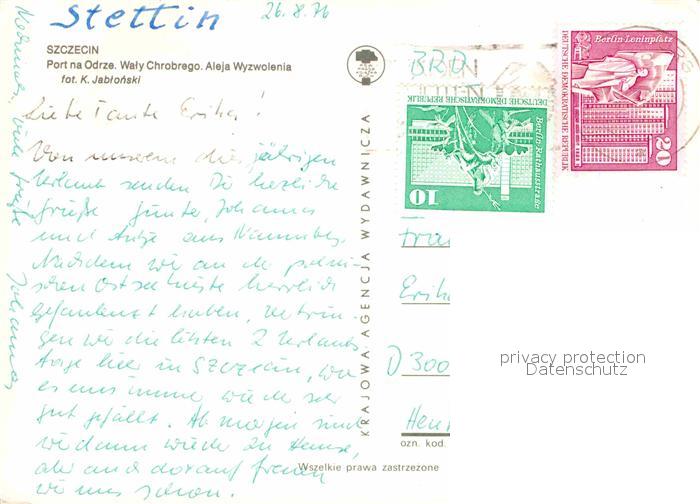 Stettin
26.8.76
SZCZECIN
Port na Odrze. Wały Chrobrego. Aleja Wyzwolenia
fot. K. Jabłoński
Liebe Tante Erika!
Von unserem diesjährigen
Urlaub senden Dir herzliche
Grüße Günter, Johannes
und Antje aus Naumburg.
Nachdem wir an der polni-
schen Ostseeküste herrlich
gefaulenzt haben, verbrin-
gen wir die letzten 2 Urlaubs
tage hier in Szczecin, wo
es uns immer wieder sehr
gut gefällt. Ab morgen sind
wir dann wieder zu Hause,
aber auch darauf freuen
wir uns schon.
Nochmals, viele Grüße
Johannes
KRAJOWA AGENCJA WYDAWNICZA
BRD
DEUTSCHE DEMOKRATISCHE REPUBLIK
Berlin-Rathausstraße
10
Berlin-Leninplatz
DEUTSCHE DEMOKRATISCHE REPUBLIK
20
Frau
Erika
D 300
ozn. kod.
Wszelkie prawa zastrzeżone
privacy protection
Datenschutz